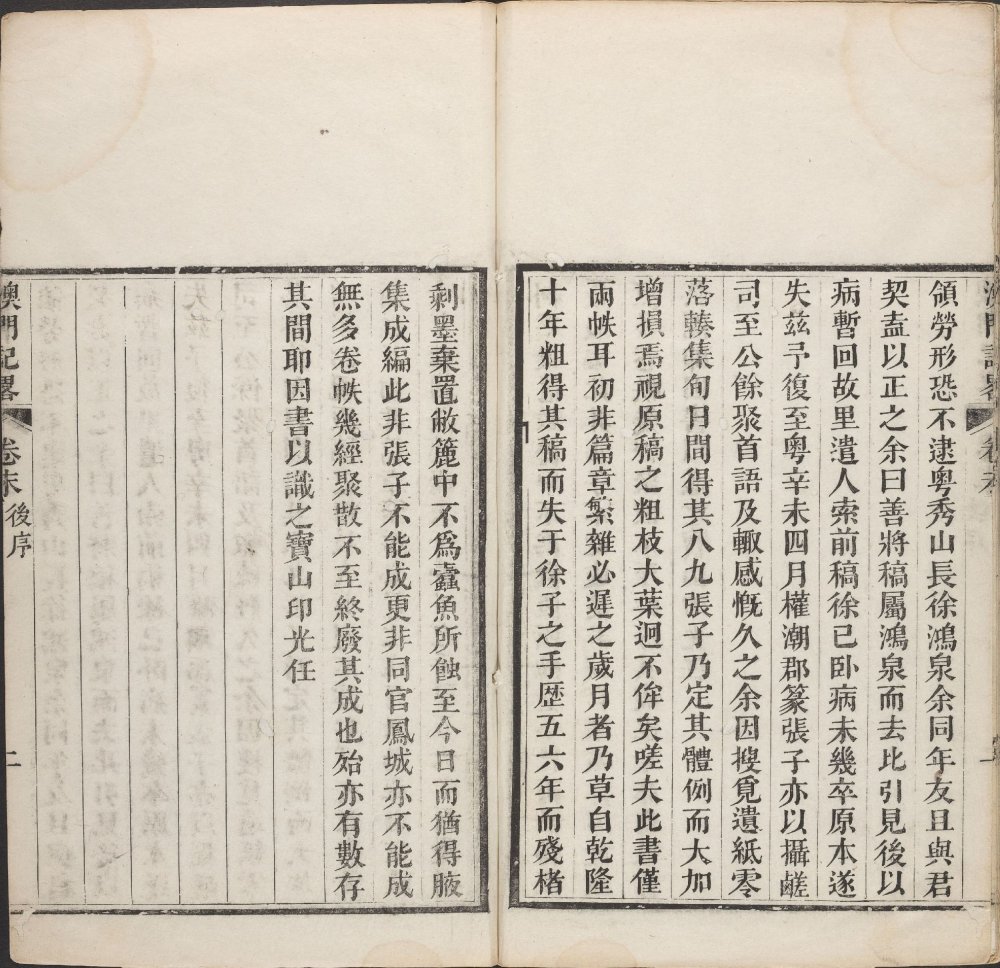 領勞形恐不逮粤秀山長徐鴻泉余同年友且與君
契盍以正之余曰善將稿屬鴻泉而去比引見後以
病暫回故里遣人索前稿徐已卧病未幾卒原本遂
失兹予復至粤辛未四月權潮郡篆張子亦以攝鹺
司至公餘聚首語及輙感慨久之余因搜覓遺紙零
落輳集旬日間得其八九張子乃定其體例而大加
增損焉視原稿之粗枝大葉迥不侔矣嗟夫此書僅
兩帙耳初非篇章繁雜必遲之歲月者乃草自乾隆
十年粗得其稿而失于徐子之手歷五六年而殘楮
剩墨棄置敝簏中不爲蠧魚所蝕至今日而猶得腋
集成編此非張子不能成更非同官鳳城亦不能成
無多卷帙幾經聚散不至終廢其成也殆亦有數存
其間耶因書以識之寶山印光任
澳門記畧 卷末 後序 二